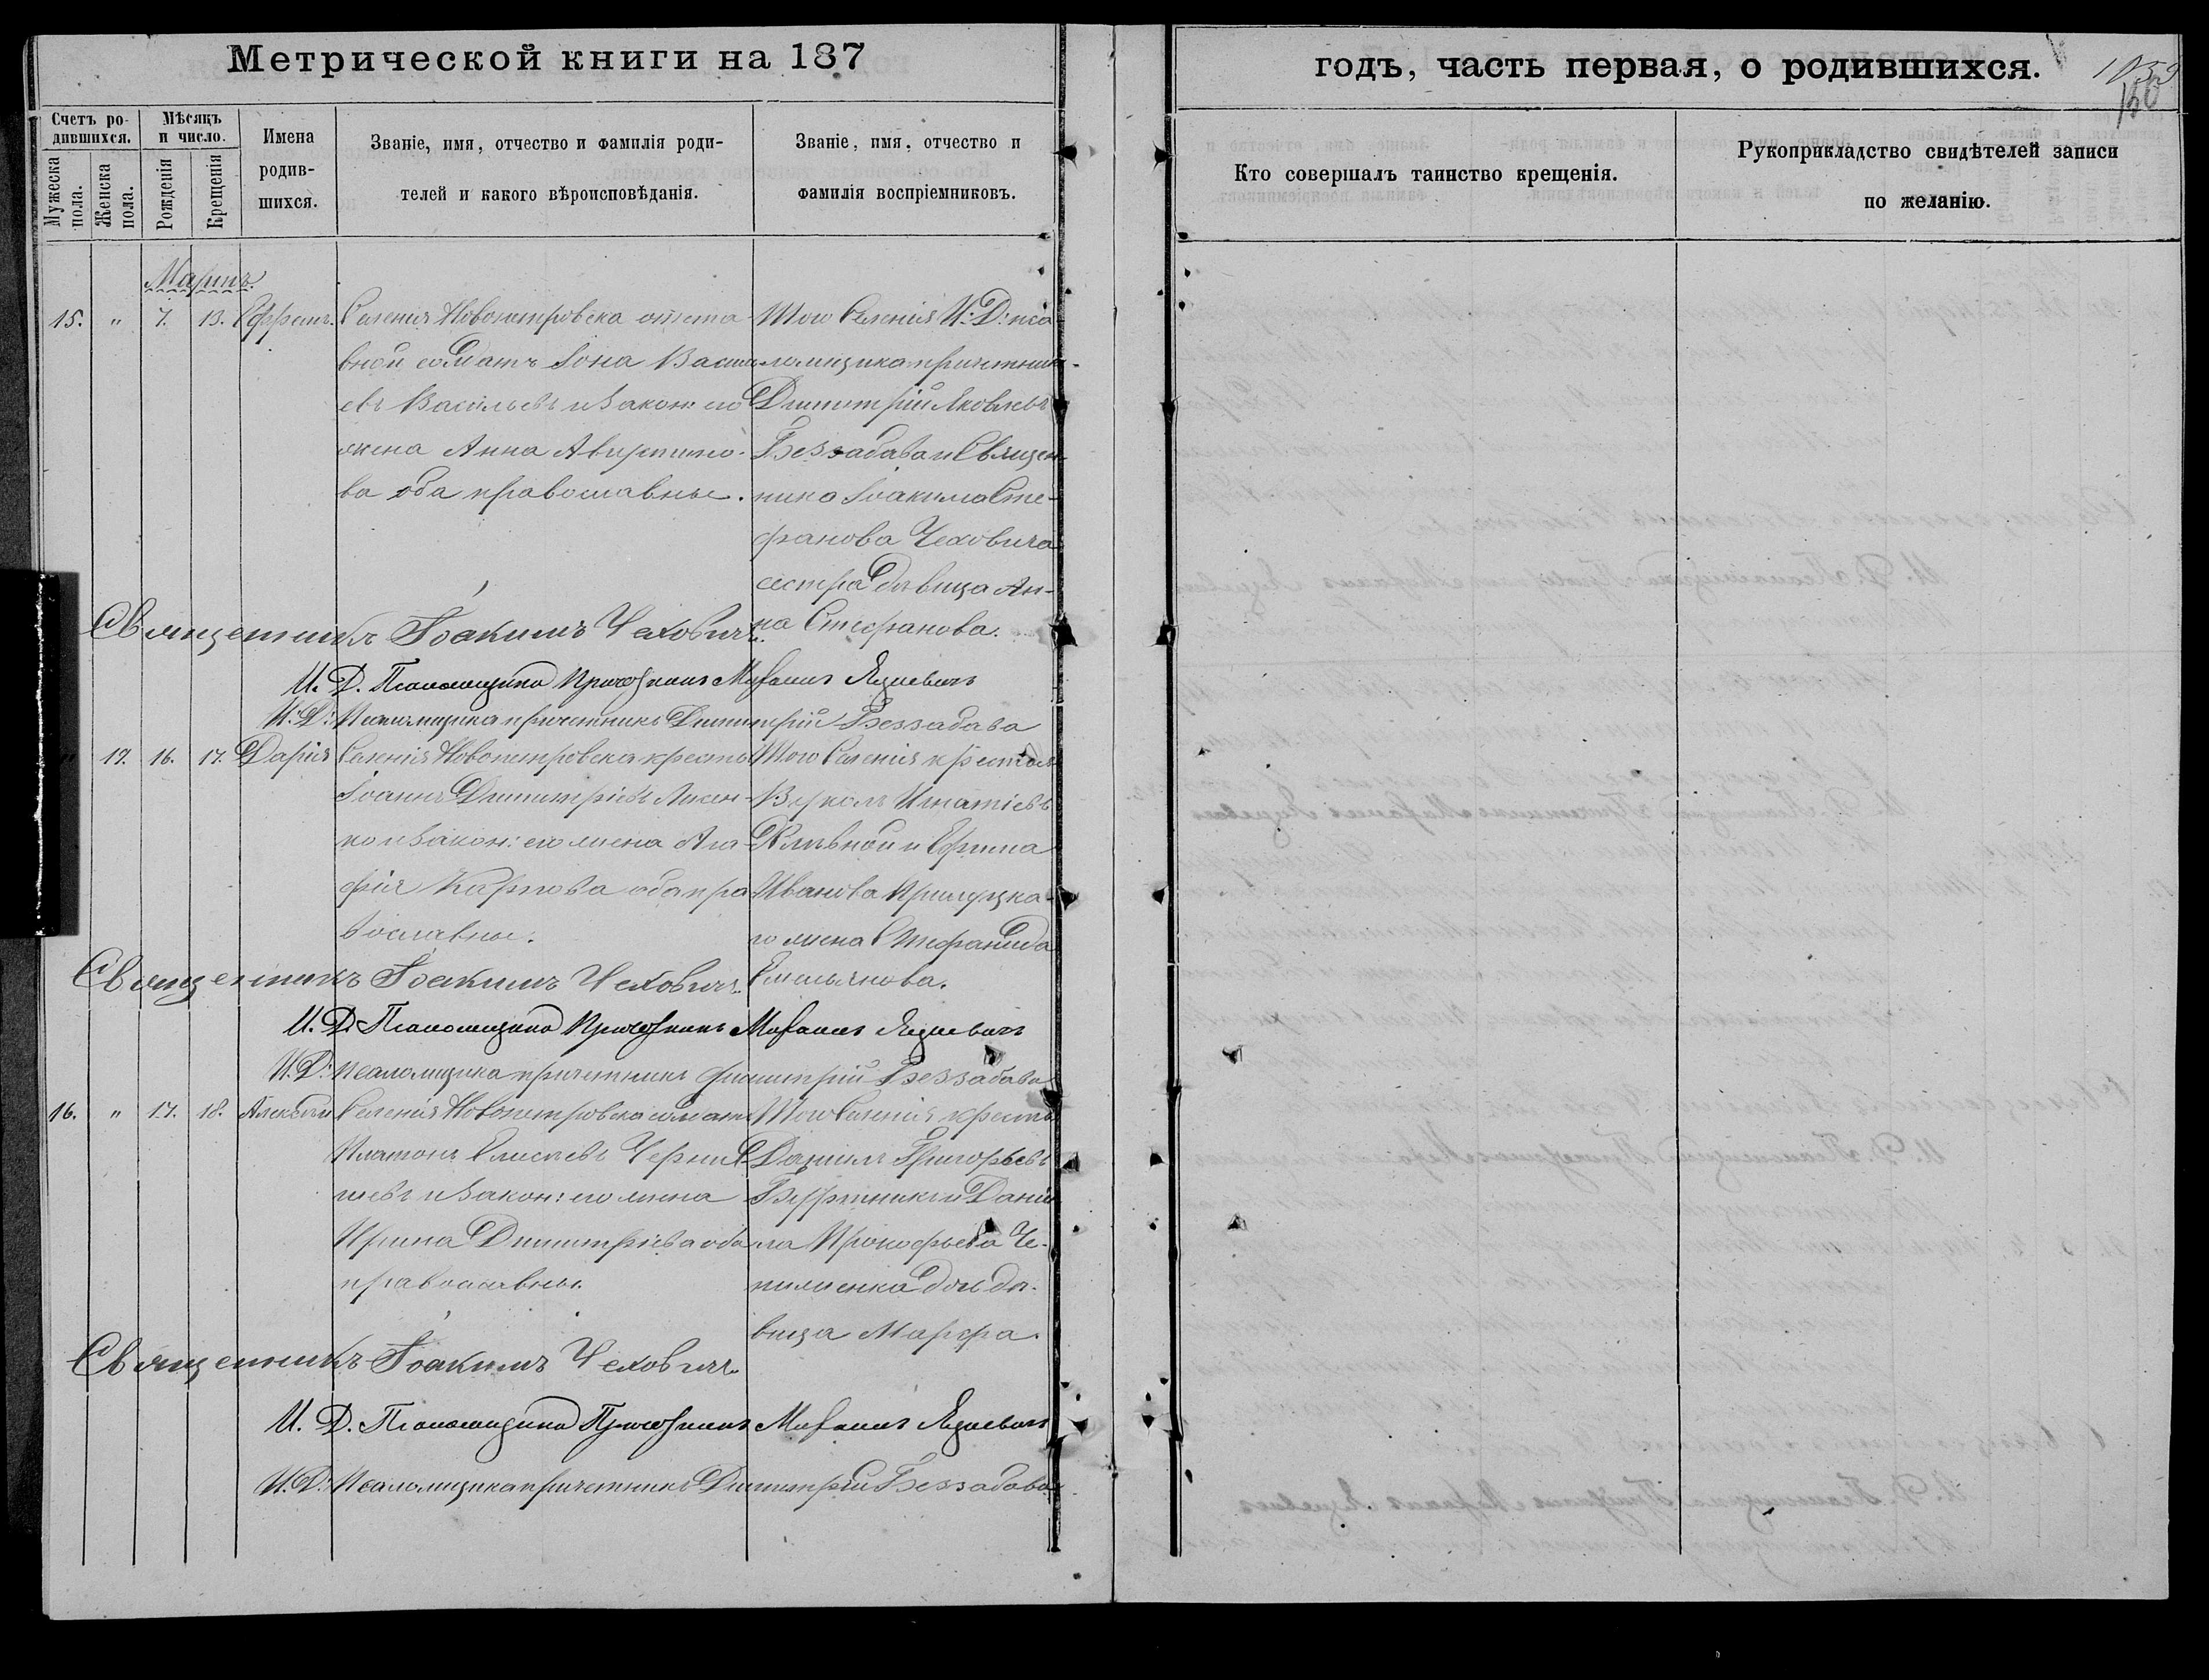 Метрической книги на 187
годъ, часть первая, о родившихся.
Счетъ родившихся.
Мужеска пола.
Женска пола.
Мѣсяцъ и число.
Рожденія
Крещенія
Имена родившихся.
Званіе, имя, отчество и фамилія роди-
телей и какого вѣроисповѣданія.
Званіе, имя, отчество и
фамилія воспріемниковъ.
Кто совершалъ таинство крещенія.
Рукоприкладство свидѣтелей записи
по желанію.
Мартъ.
15. " 7. 13. Ефремъ.
Селенія Новопетровска отста
вной солдатъ Іона Васил
евъ Васильевъ и закон: его
жена Анна
ва оба православные.
Того Селенія И: Д: пса
ломщика причетник
Димитрій Яковлевъ
Беззабава и Священ-
ника Іоакима Сте-
фанова Чеховича
сестра дѣвица Ан-
на Стефанова.
Священникъ Іоакимъ Чеховичъ.
И. Д. Псаломщика Причетникъ
И: Д: Псаломщика причетникъ Димитрій Беззабава
" 17. 16. 17. Дарія
Селенія Новопетровска кресть
Іоаннъ Димитріевъ
ко и закон: его жена Ага
фія Карпова оба пра
вославные.
Того Селенія крестья
Игнатіевъ
и Ефима
Иванова
го жена Стефанида
Емельянова.
Священникъ Іоакимъ Чеховичъ.
И. Д. Псаломщика Причетникъ
И. Д: Псаломщика причетникъ Димитрій Беззабава
16. " 17. 18. Алексѣй
Селенія Новопетровска солдатъ
Платонъ Елисѣевъ Черны
шевъ и закон: его жена
Ирина Димитріева оба
православные.
Того Селенія кресть
Даніилъ Григорьевъ
и Даніи
ла Прокофьева Че-
дочь дѣ-
вица Марфа.
Священникъ Іоакимъ Чеховичъ.
И. Д. Псаломщика Причетникъ
И. Д: Псаломщика причетникъ Димитрій Беззабава